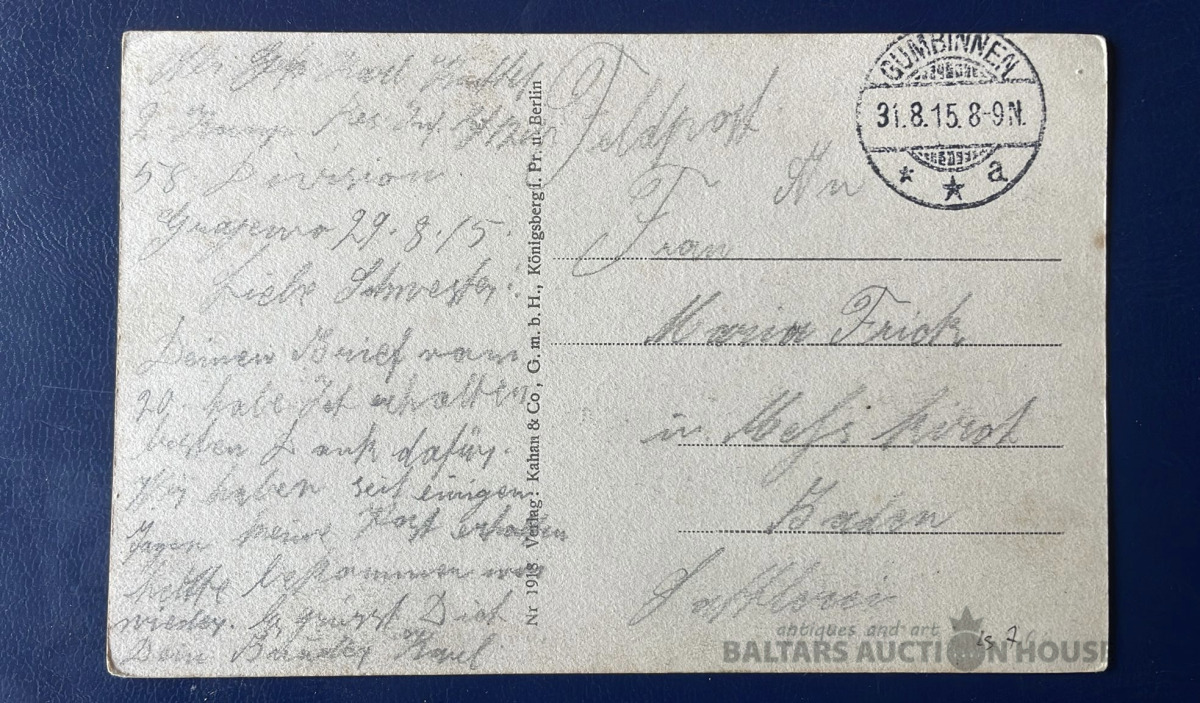 Karl
2. Komp. Res. Inf.
58 Division
Grajewo 29.8.15.
Liebe Schwester!
Deinen Brief vom
20. habe Ich erhalten
besten Dank dafür.
Wir haben seit einigen
Tagen keine Post erhalten
bekommen wir
wieder. Es grüsst Dich
Dein Bruder Karl
Nr 1918 Verlag: Kahan & Co., G. m. b. H., Königsberg i. Pr. u. Berlin
Feldpost
GUMBINNEN
31.8.15.8-9N.
* * a
An
Frau
Maria Frick
in Messkirch
Baden
Sattlerei
antiques and art
BALTARS AUCTION HOUSE